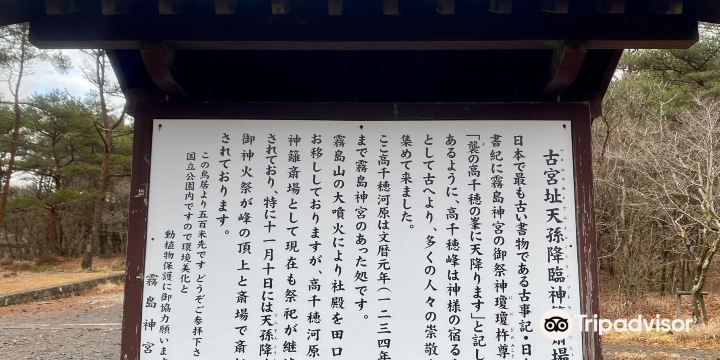 古宮址天孫降臨神籬斎場
日本で最も古い書物である古事記・日
書紀に霧島神宮の御祭神瓊瓊杵尊
「襲の高千穂の峯に天降ります」と記し
あるように、高千穂峰は神様の宿る
として古へより、多くの人々の崇敬
集めて来ました。
ここ高千穂河原は文暦元年(一二三四年
まで霧島神宮のあった処です。
霧島山の大噴火により社殿を田口
お移ししておりますが、高千穂河原
神籬斎場として現在も祭祀が継
されており、特に十一月十日には天孫降
御神火祭が峰の頂上と斎場で斎
されております。
この鳥居より五百米先です どうぞご参拝下さ
国立公園内ですので環境美化と
動植物保護に御協力願いま
霧島神宮
Tripadvisor